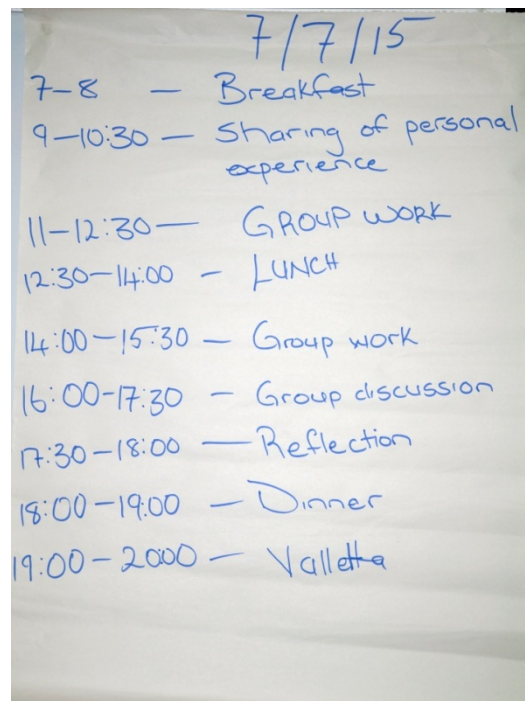 7/7/15
7-8 — Breakfast
9-10:30 — Sharing of personal
experience
11-12:30 — GROUP WORK
12:30-14:00 - LUNCH
14:00-15:30 — Group work
16:00-17:30 - Group discussion
17:30-18:00 — Reflection
18:00-19:00 - Dinner
19:00-20:00 - Valletta